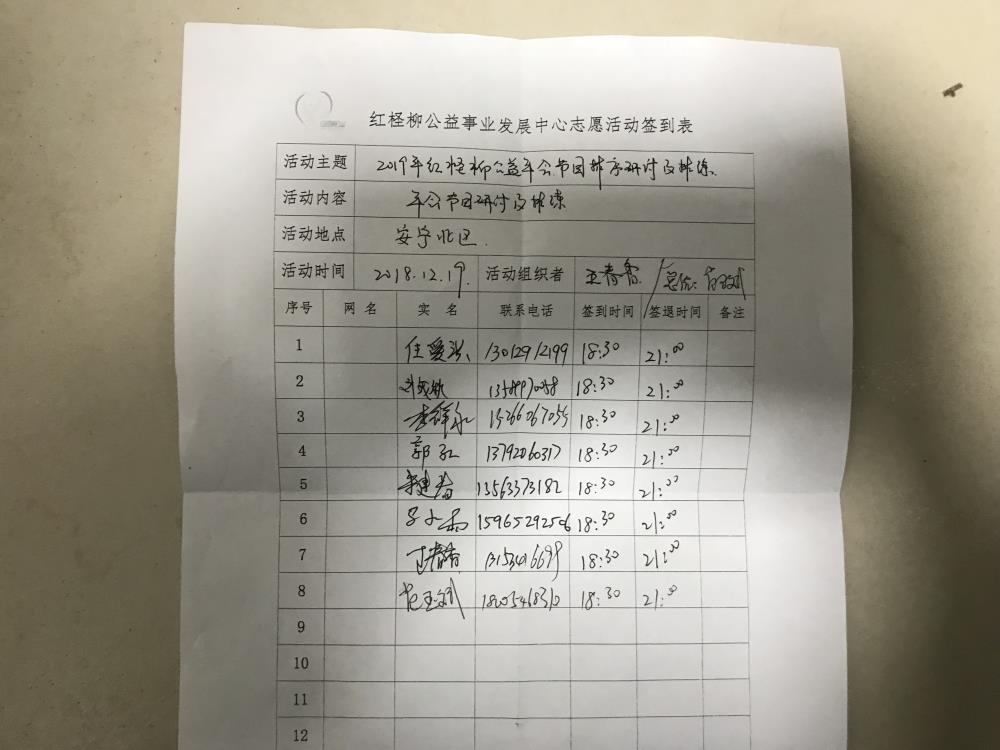 红柽柳公益事业发展中心志愿活动签到表
活动主题 2019年红柽柳公益年会节目排序研讨及排练
活动内容 年会节目研讨及排练
活动地点 安宁北区.
活动时间 2018.12.19. 活动组织者 王春香 / 总结:
序号 网名 实名 联系电话 签到时间 签退时间 备注
1 任爱 13012912199 18:30 21:00
2 18:30 21:00
3 李 15266067055 18:30 21:00
4 郭红 13792060317 18:30 21:00
5 13563373182 18:30 21:00
6 15965292506 18:30 21:00
7 王春香 18:30 21:00
8 18:30 21:00
9
10
11
12